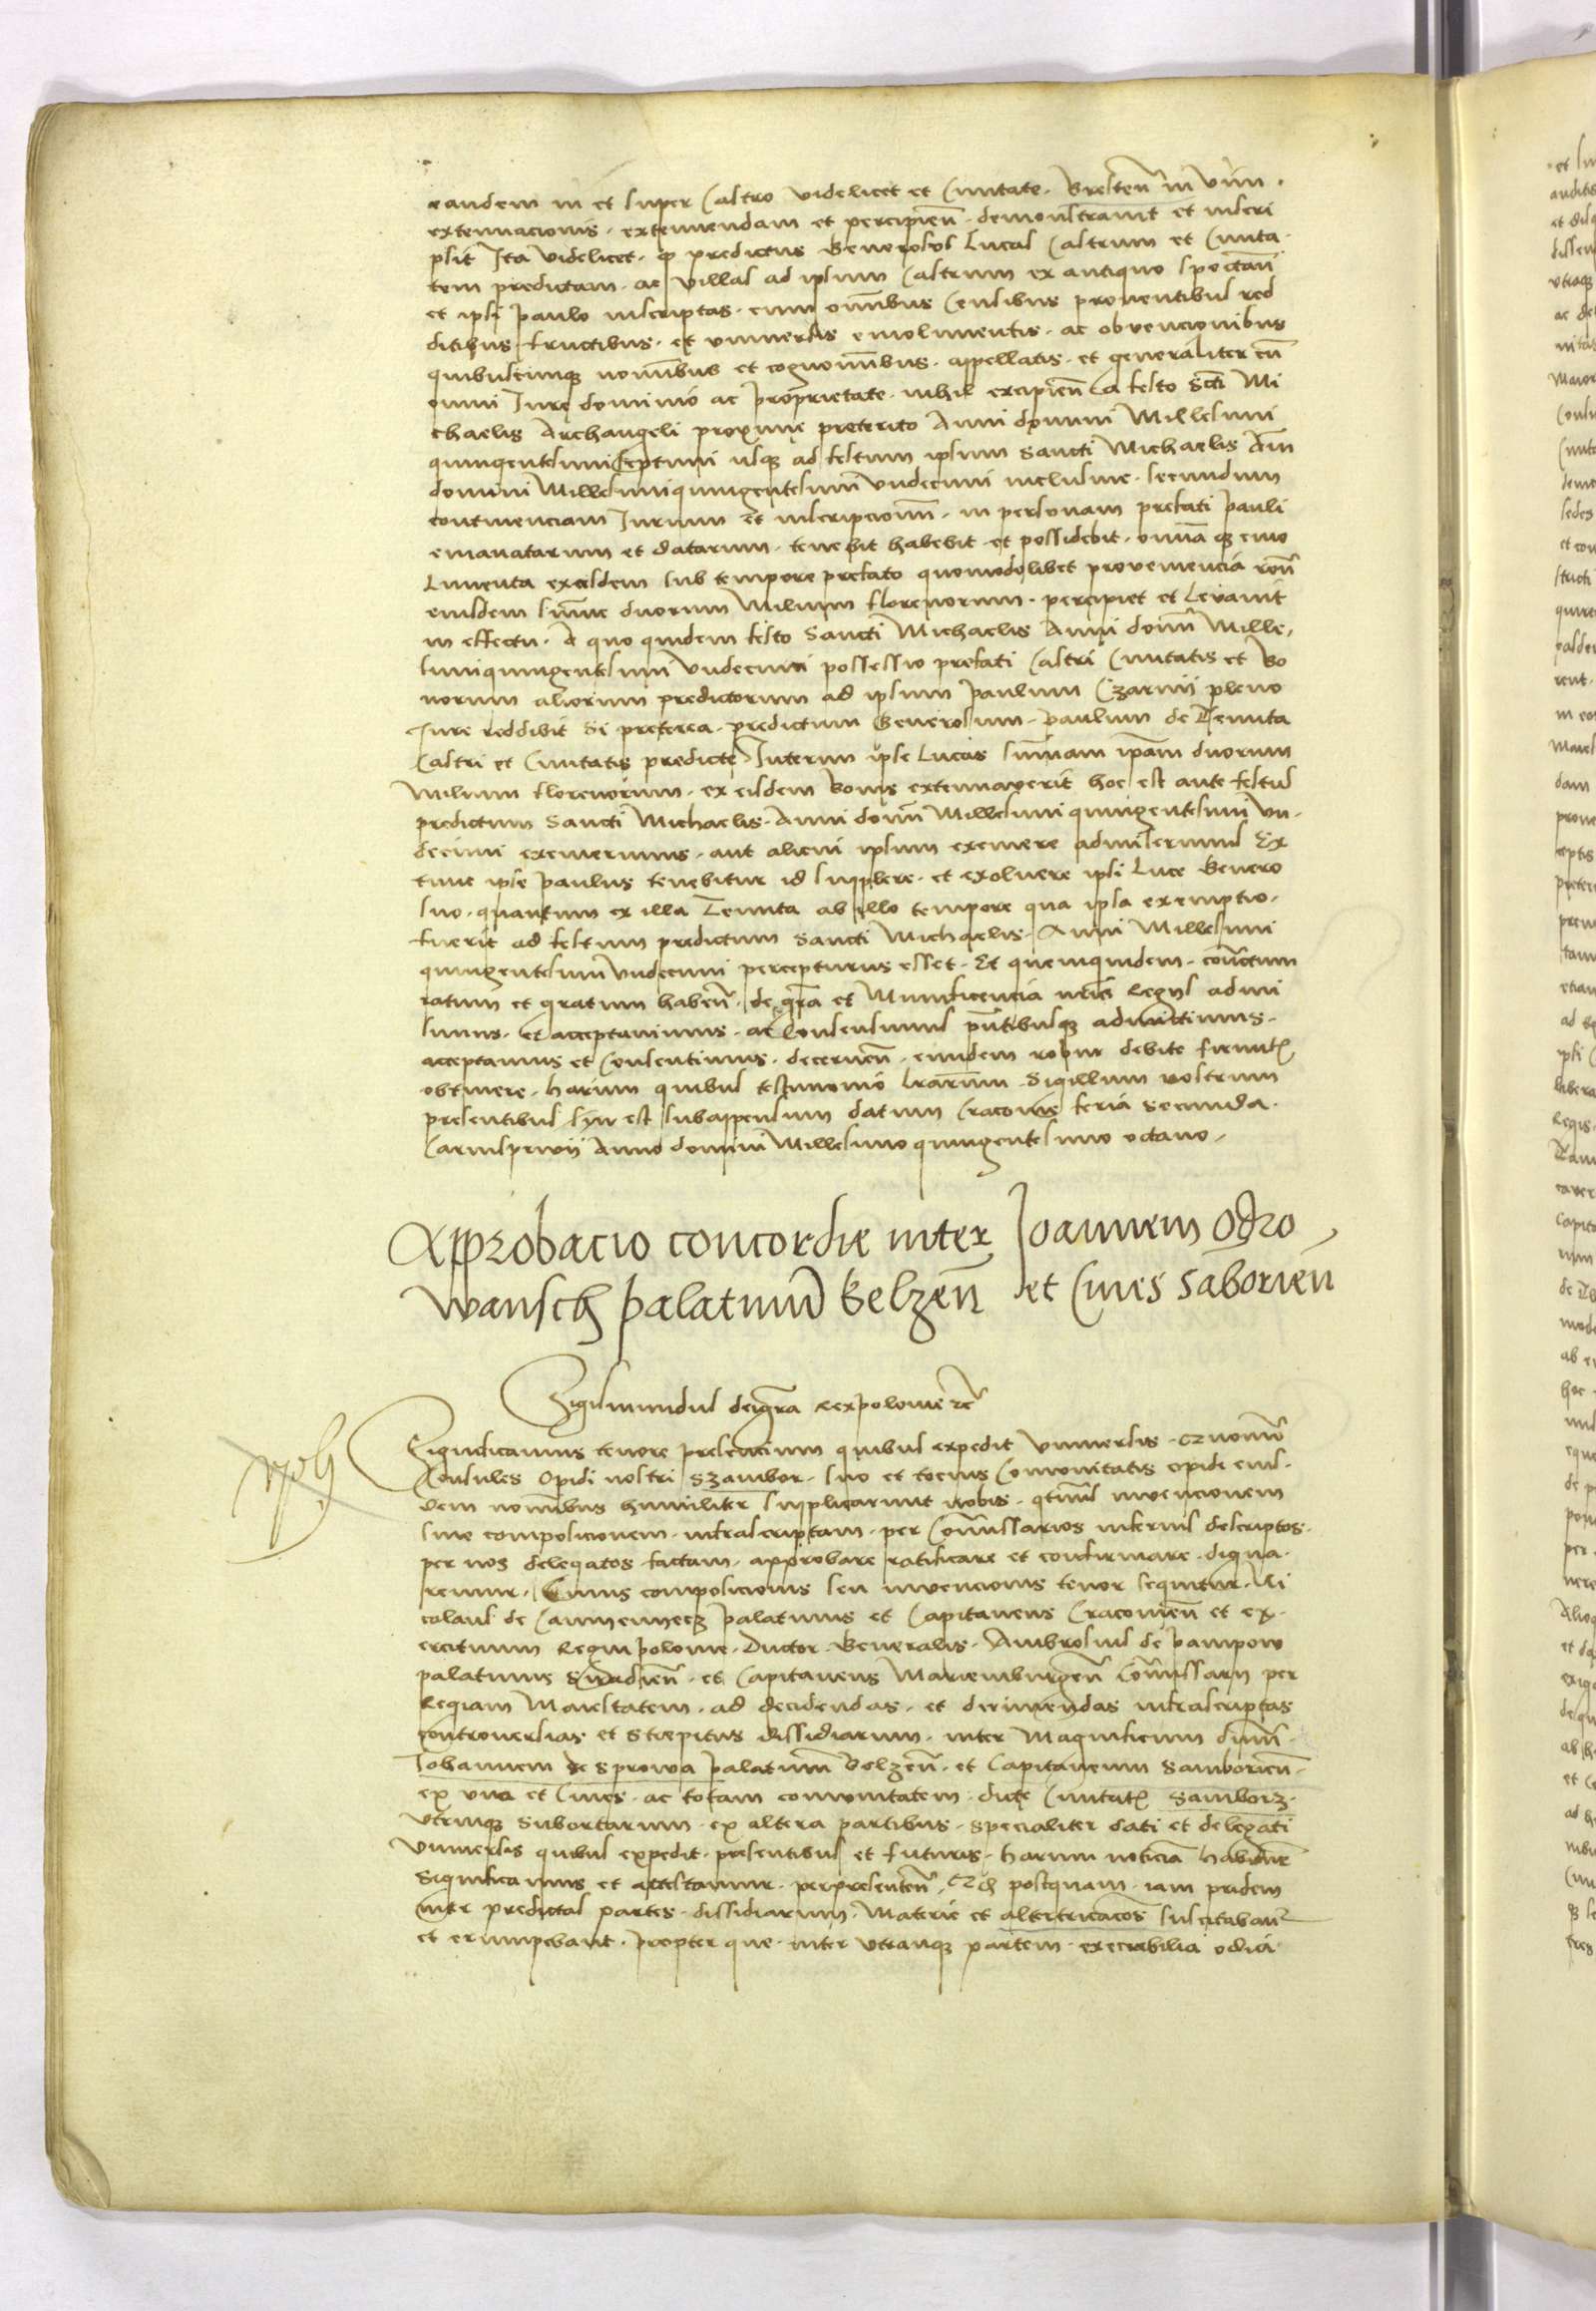 eandem in et super Castro videlicet et Civitate. Bresten̄ in vim.
extenuacionis. extenuendam et percipien̄. demonstrauit et inscri
psit Ita videlicet. ꝙ predictus Generosus Lucas Castrum et Ciuita
tem predictam. ac villas ad ipsum Castrum ex antiquo spectan̄
et ipsi paulo inscriptas. cum om̄ibus Censibus prouentibus red
ditibus. fructibus. et vniuersis emolumentis. ac obuencionibus
quibuscunqꝫ nom̄ibus et cognom̄ibus. appellatis. et generaliter cū
omni Iure dominio ac proprietate. nihil excipien̄ a festo Scti Mi
chaelis Archangeli proxime preterito Anni domini Millesimi
quingentesimi septimi usqꝫ ad festum ipsum Sancti Michaelis An̄i
domini Millesimiquingentesimi vndecimi inclusiue. secundum
continenciam Iurium et inscripcionū. in personam prefati pauli
emanatarum et datarum. tenebit habebit et possidebit. omnia qꝫ emo
lumenta ex eisdem sub tempore prefato quomodolibet proueniencia ron̄e
eiusdem sum̄e duorum Milium florenorum. percipiet et Levauit
in effectu. A quo quidem festo Sancti Michaelis Anni domī Mille,
simiquingentesimi vndecimi possessio prefati Castri Ciuitatis et bo
norum aliorum predictorum ad ipsum paulum Czarnij pleno
Iure reddibit Si preterea. predictum Generosum. paulum de Tenuta
Castri et Ciuitatis predicte Interim ipse Lucas sum̄am ip̄am duorum
Milium florenorum. ex eisdem bonis extenuauerit hoc est ante festū
predictum Sancti Michaelis. Anni domī Millesimi quingentesimi vn-
decimi exemerimus. aut alicui ipsum exemere admiserimus Ex
tunc ipse paulus tenebitur id supplere. et exoluere ipsi Luce Genero
suo. quantum ex illa Tenuta ab illo tempore qua ipsa exemptio.
fuerit ad festum predictum Sancti Michaelis. Anni Millesimi
quingentesimi vndecimi percepturus esset. Et quemquidem. con̄tum
ratum et gratum haben̄. de gr̄a et Munificencia nr̄is Regijs admi
simus. et acceptauimus. ac Consensimus pn̄tibusqꝫ admittimus.
acceptamus et Consentimus. decernen̄. eundem robur debite firmitꝭ
obtinere. harum quibus testimonio lrarum Sigillum nostrum
presentibus est subappensum datum Cracouie feria Secunda.
Carnispriuij Anno domini Millesimo quingentesimo octauo.
Approbacio concordie inter Joannem Odro
wansch palatinū Belzen̄ et Ciues Saborien̄
Sigismundus dei gr̄a Rex polonie etc̄
Significamus tenore presencium quibus expedit vniuersis.
Consules Opidi nostri Szambor. suo et tocius Comonitatis opidi eius-
dem nom̄ibus humiliter supplicarunt nobis. inuencionem
siue composicionem. infrascriptam. per Com̄issarios inferius descriptos.
per nos delegatos factam. approbare ratificare et confirmare. digna.
remur. Cuius composicionis seu inuencionis tenor sequitur. Ni
colaus de Camyenyecz palatinus et Capitaneus Cracouien̄ et ex.
ercituum Regni polonie. Ductor. Generalis. Ambrosius de pampow
palatinus Siradien̄. et Capitaneus Mariemburgen̄ Com̄issarij per
Regiam Maiestatem. ad decidendas. et dirimendas infrascriptas
controuersias et strepitus dissidiarum. inter Magnificum dnm̄.
Iohannem de Sprowa palatinū Belzen̄. et Capitaneum Samborien̄.
ex vna et Ciues. ac totam comonitatem. dicte Ciuitatꝭ Samborz.
vtrinqꝫ Subortarum. ex altera partibus. specialiter dati et delegati
Vniuersis quibus expedit. presentibus et futuris. harum noticiā habitur̄
Significamus et attestamur. per presentē. postquam. iam pridem
inter predictas partes. dissidiarum. Materie et altetricaco̅s suscitabant̄
et erumpebant. propter que. inter vtranqꝫ partem. execrabilia odia